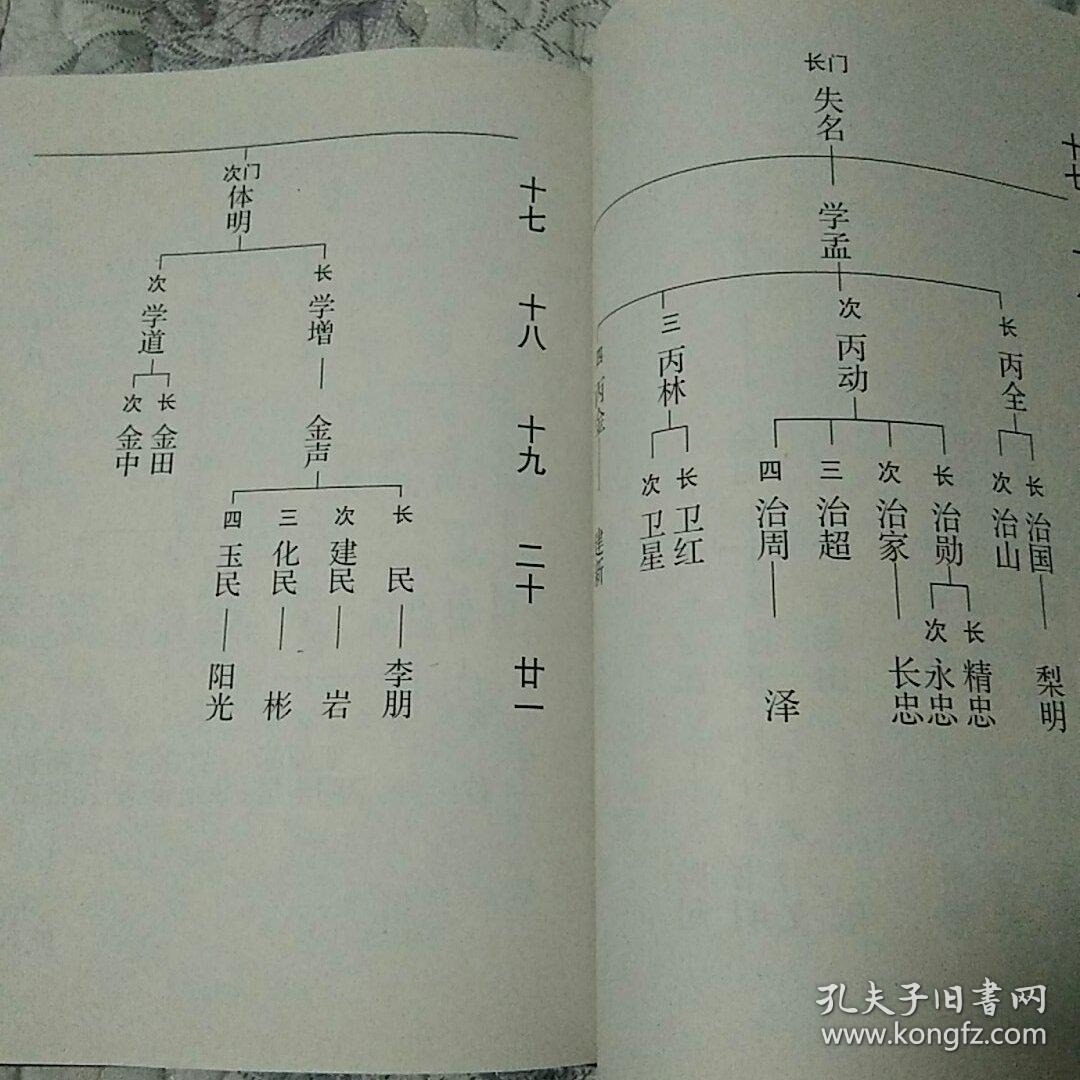 长门
失名
学孟
长
丙全
长
治国
梨明
次
治山
次
丙动
长
治勋
长
精忠
次
永忠
次
治家
长忠
三
治超
四
治周
泽
三
丙林
长
卫红
次
卫星
四
建新
十七
十七
十八
十九
二十
廿一
次门
体明
长
学增
金声
长
民
李朋
次
建民
岩
三
化民
彬
四
玉民
阳光
次
学道
长
金田
次
金中
孔夫子旧书网
www.kongfz.com